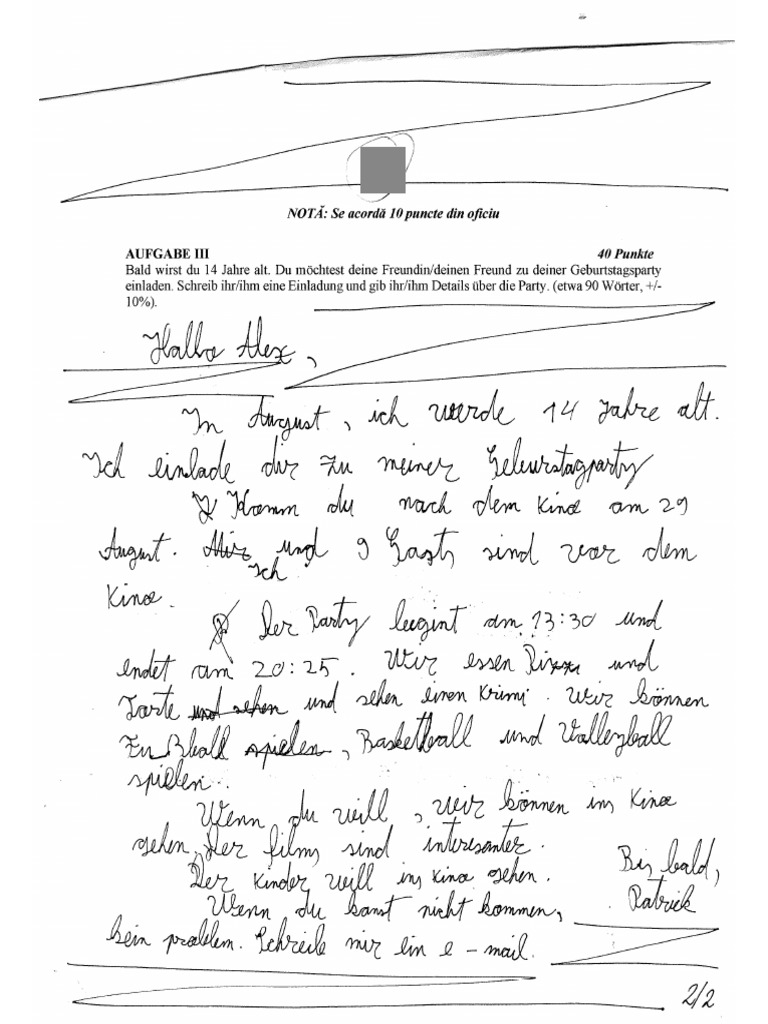 NOTĂ: Se acordă 10 puncte din oficiu
AUFGABE III 40 Punkte
Bald wirst du 14 Jahre alt. Du möchtest deine Freundin/deinen Freund zu deiner Geburtstagsparty
einladen. Schreib ihr/ihm eine Einladung und gib ihr/ihm Details über die Party. (etwa 90 Wörter, +/-
10%).
Hallo Alex,
In August, ich werde 14 Jahre alt.
Ich einlade dir zu meiner Geburstagparty
Komm du nach dem Kino am 29
August. Ich und 9 Gasts sind vor dem
Kino.
Der Party begint am 13:30 und
endet am 20:25. Wir essen Pizza und
Torte und sehen und sehen einen Krimi. Wir können
Fußball spielen, Basketball und Volleyball
spielen.
Wenn du will, wir können ins Kino
gehen, Der films sind interesanter.
Der Kinder will ins Kino gehen.
Wenn du kanst nicht kommen,
kein problem. Schreibe mir ein e-mail.
Bis bald,
Patrick
2/2